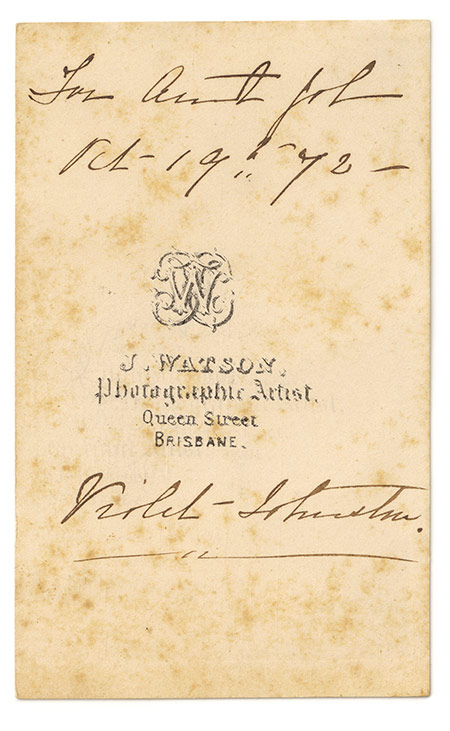 For Aunt Joh
Oct - 19th 72 -
JW
J. WATSON.
Photographic Artist.
Queen Street
BRISBANE.
Violet Johnston.